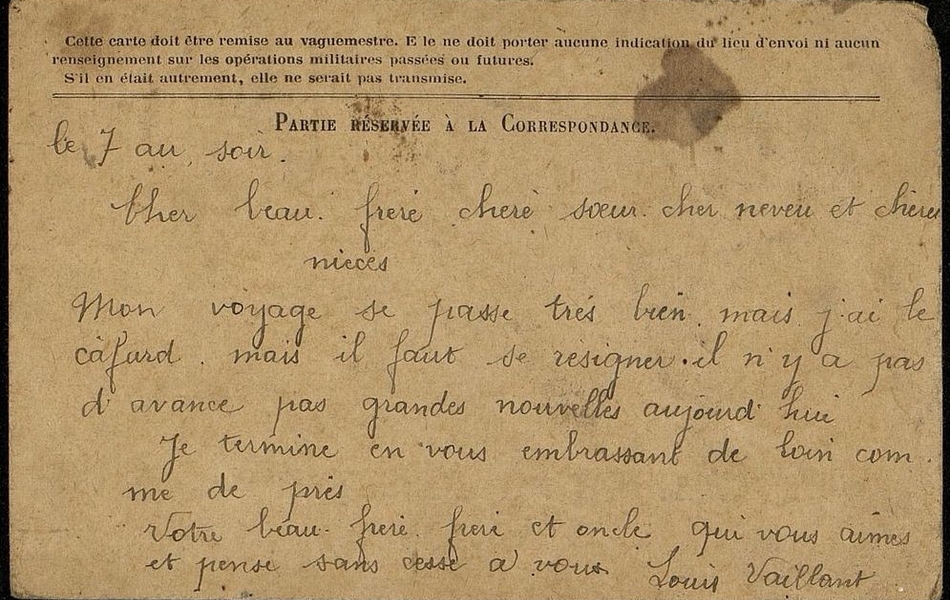 Cette carte doit être remise au vaguemestre. E le ne doit porter aucune indication du lieu d'envoi ni aucun
renseignement sur les opérations militaires passées ou futures.
S'il en était autrement, elle ne serait pas transmise.
PARTIE RÉSERVÉE À LA CORRESPONDANCE.
le 7 au soir.
Cher beau. freré cheré sœur. cher neveu et chères
nieces
Mon voyage se passe trés bien mais j'ai le
cafard. mais il faut se résigner. il n'y a pas
d'avance pas grandes nouvelles aujourd'hui
Je termine en vous embrassant de loin com.
me de prés
Votre beau. freré freré et oncle qui vous aimes
et pense sans cesse a vous Louis Vaillant